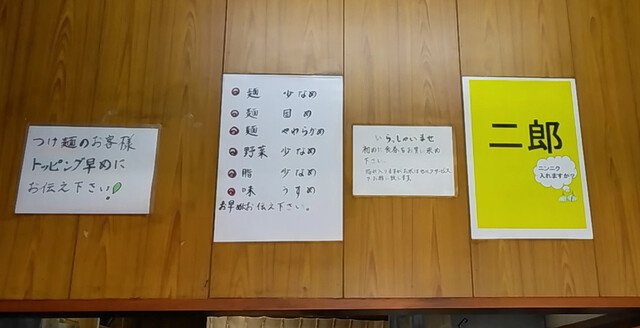 つけ麺のお客様
トッピング早めに
お伝え下さい!
麺 少なめ
麺 固め
麺 やわらかめ
野菜 少なめ
脂 少なめ
味 うすめ
お早めにお伝え下さい。
いらっしゃいませ
初めに食券をお買い求め
下さい。
二郎
ニンニク
入れますか?